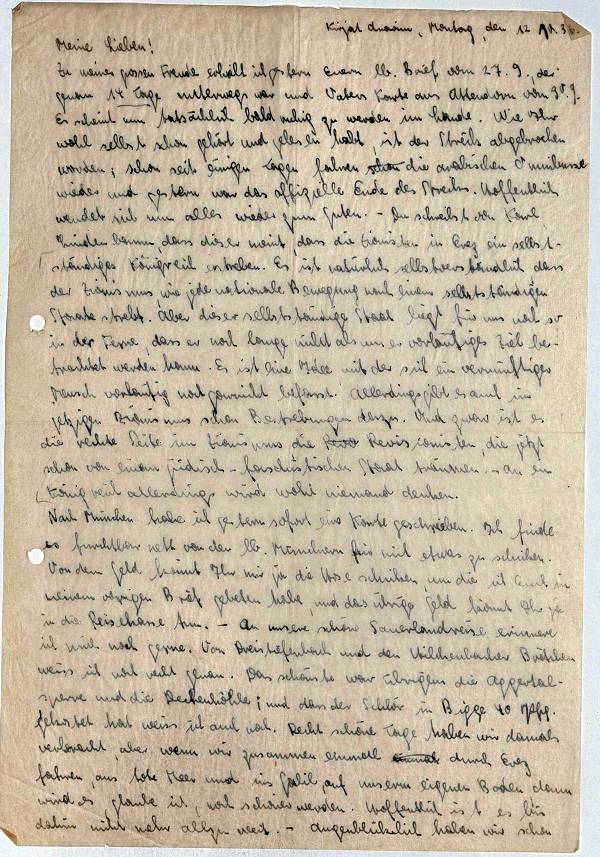 Kirjat Anavim, Montag, den 12. 10. 36.
Meine Lieben!
Zu meiner grossen Freude erhielt ich gestern Euern lb. Brief vom 27.9. der
genau 14 Tage unterwegs war und Vaters Karte aus Attendorn vom 30.9.
Es scheint nun tatsächlich bald ruhig zu werden im Lande. Wie Ihr
wohl selbst schon gehört und gelesen habt, ist der Streik abgebrochen
worden; schon seit einigen Tagen fahren die arabischen Omnibusse
wieder und gestern war das offizielle Ende des Streiks. Hoffentlich
wendet sich nun alles wieder zum Guten. – Du schreibst von Karl
, dass dieser meint, dass die Zionisten in Erez ein selbst-
ständiges Königreich erstreben. Es ist natürlich selbstverständlich dass
der Zionismus, wie jede nationale Bewegung nach einem selbstständigen
Staate strebt. Aber dieser selbständige Staat liegt für uns noch so
in der Ferne, dass er noch lange nicht als unser vorläufiges Ziel be-
trachtet werden kann. Es ist eine Idee mit der sich ein vernünftiger
Mensch vorläufig noch garnicht befasst. Allerdings gibt es auch im
jetzigen Zionismus schon Bestrebungen dazu. Und zwar ist es
die rechte Seite im Zionismus die Revisionisten, die jetzt
schon von einem jüdisch-faschistischen Staat träumen. – An ein
Königreich allerdings wird wohl niemand denken.
Nach München habe ich gestern sofort eine Karte geschrieben. Ich finde
es furchtbar nett von den lb. Münchnern für mich etwas zu schicken.
Von dem Geld könnt Ihr mir ja die Hose schicken, um die ich Euch in
meinem vorigen Brief gebeten habe, und das übrige Geld könnt Ihr ja
in die Reisekasse tun. – An unsere schöne Sauerlandreise erinnere
ich mich noch gerne. Von Dreistiefenbach und den Hilchenbacher Brötchen
weiss ich noch recht genau. Das schönste war übrigens die Aggertal-
sperre und die Dechenhöhle; und dass der in Bigge 40 Pfg.
gekostet hat weiss ich auch noch. Recht schöne Tage haben wir damals
verbracht, aber wenn wir zusammen einmal durch Erez
fahren, ans tote Meer und ins Galil, auf unserm eigenen Boden dann
wird es, glaube ich, noch schöner werden. Hoffentlich ist es bis
dahin nicht mehr allzu weit. – Augenblicklich haben wir schon